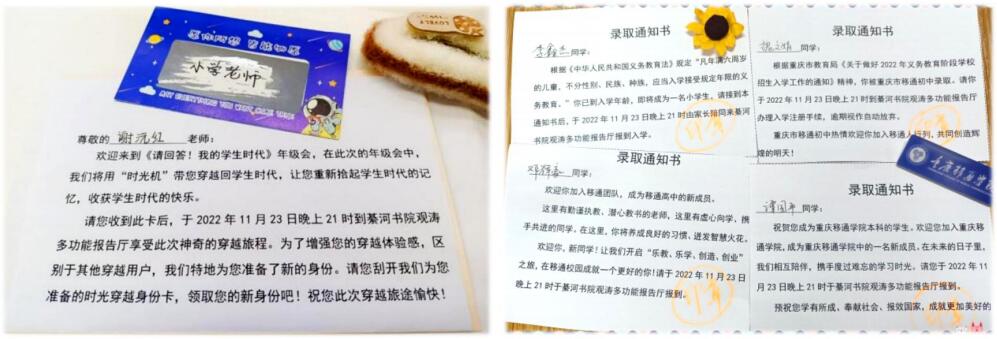 愿你所想 皆能如愿
小学老师
MAY EVERYTHING YOU WANT COME TRUE
尊敬的 谢沅红 老师：
欢迎来到《请回答！我的学生时代》年级会，在此次的年级会中，
我们将用“时光机”带您穿越回学生时代，让您重新拾起学生时代的记
忆，收获学生时代的快乐。
请您收到此卡后，于 2022 年 11 月 23 日晚上 21 时到綦河书院观涛
多功能报告厅享受此次神奇的穿越旅程。为了增强您的穿越体验感，区
别于其他穿越用户，我们特地为您准备了新的身份。请您刮开我们为您
准备的时光穿越身份卡，领取您的新身份吧！祝您此次穿越旅途愉快！
LOVELY
录取通知书
同学：
根据《中华人民共和国义务教育法》规定“凡年满六周岁
的儿童，不分性别、民族、种族，应当入学接受规定年限的义
务教育。”你已到入学年龄，即将成为一名小学生，请接到本
通知书后，于 2022 年 11 月 23 日晚上 21 时由家长陪同来綦河
书院观涛多功能报告厅到入学。
印章
录取通知书
同学：
根据重庆市教育局《关于做好 2022 年义务教育阶段学校
招生入学工作的通知》精神，你被重庆市移通初中录取。请你
于 2022 年 11 月 23 日晚上 21 时到綦河书院观涛多功能报告厅
办理入学注册手续，逾期视作自动放弃。
重庆市移通初中热情欢迎你加入移通人行列，共同创造辉
煌的明天！
印章
录取通知书
同学：
欢迎你加入移通团队，成为移通高中的新成员。
这里有勤谨执教、潜心教书的老师，这里有虚心向学、携
手共进的同学。在这里，你将养成良好的习惯、迸发智慧火花。
欢迎你，新同学！让我们开启“乐教、乐学、创造、创业”
之旅，在移通校园成就一个更好的你！请于 2022 年 11 月 23 日
晚上 21 时于綦河书院观涛多功能报告厅报到。
印章
录取通知书
谭国平 同学：
祝贺您成为重庆移通学院本科的学生。欢迎您加入重庆移
通学院，成为重庆移通学院中的一名新成员，在未来的日子里，
我们相互陪伴，携手度过难忘的学习时光。请您于 2022 年 11
月 23 日晚上 21 时于綦河书院观涛多功能报告厅报到。
预祝您学有所成、奉献社会、报效国家，成就更加美好的